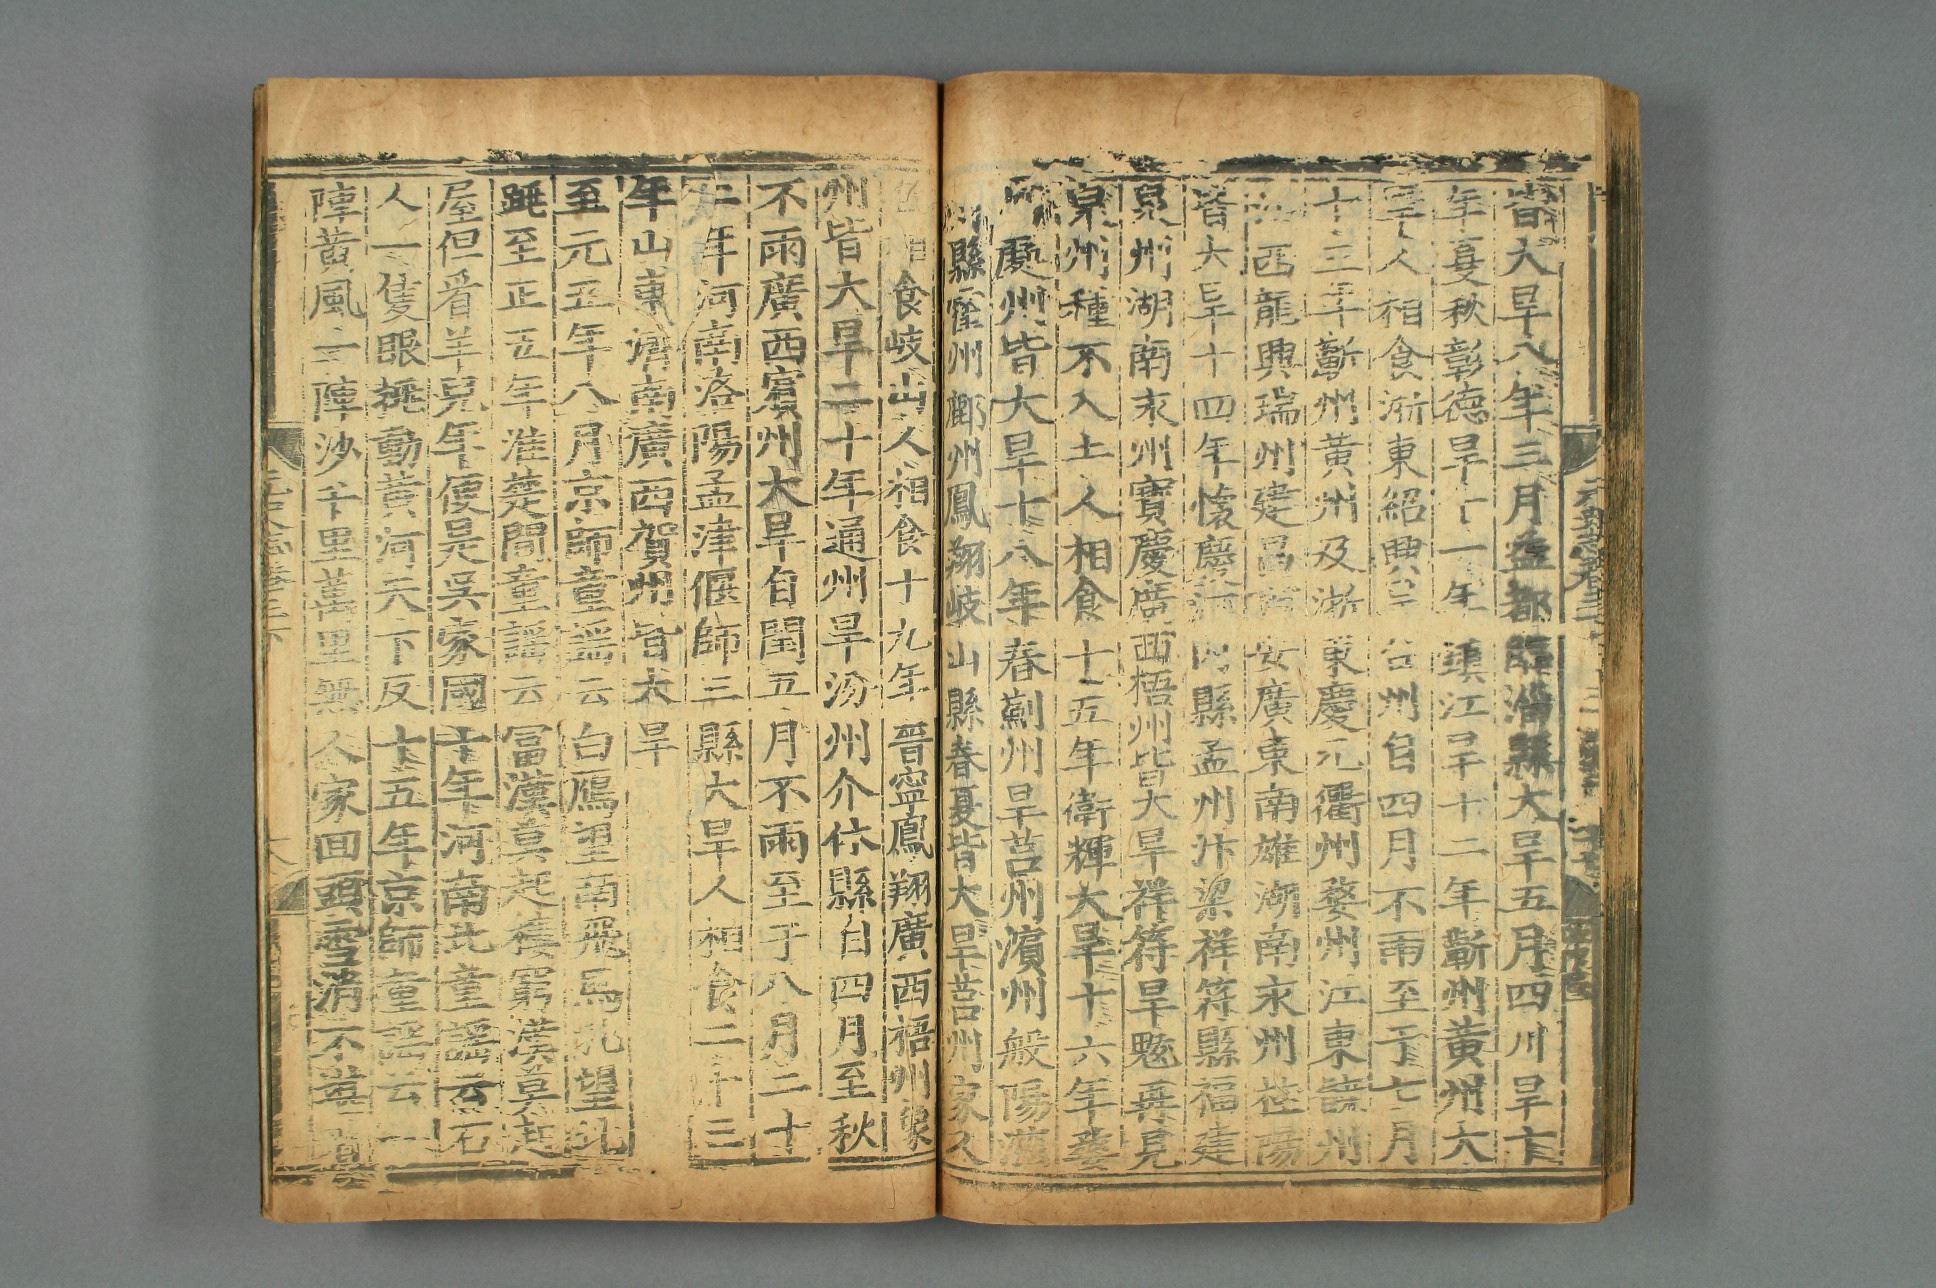 皆大旱八年三月益都臨淄縣大旱五月四川旱十
年夏秋彰德旱十一年鎮江旱十二年蘄州黃州大
旱人相食浙東紹興旱台州自四月不雨至于七月
十三年蘄州黃州及浙東慶元衢州婺州江東饒州
江西龍興瑞州建昌吉安廣東南雄湖南永州桂陽
皆大旱十四年懷慶河內縣孟州汴梁祥符縣福建
泉州湖南永州寶慶廣西梧州皆大旱祥符旱魃再見
泉州種不入土人相食十五年衛輝大旱十六年婺
處州皆大旱十八年春薊州旱莒州濱州般陽滋
川縣霍州鄜州鳳翔岐山縣春夏皆大旱莒州家人
自相食岐山人相食十九年晉寧鳳翔廣西梧州象
州皆大旱二十年通州旱汾州介休縣自四月至秋
不雨廣西賓州大旱自閏五月不雨至于八月二十
二年河南洛陽孟津偃師三縣大旱人相食二十三
年山東濟南廣西賀州皆大旱
至元五年八月京師童謠云白鴈望南飛馬札望北
跳至正五年淮楚間童謠云富漢莫起樓窮漢莫起
屋但看羊兒年便是吳家國十年河南北童謠云石
人一隻眼挑動黃河天下反十五年京師童謠云一
陣黃風一陣沙千里萬里無人家回頭雪消不堪